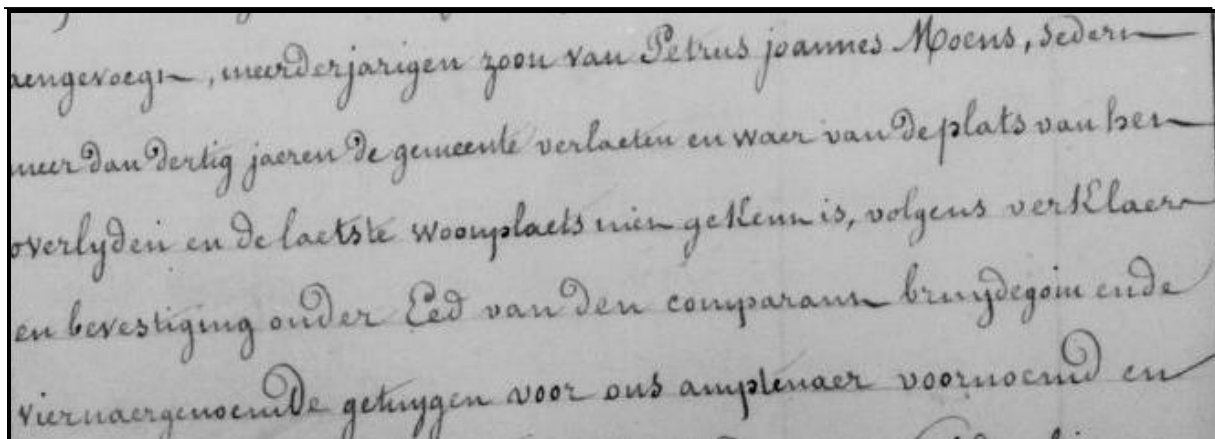 aengevoegt, meerderjarigen zoon van Petrus joannes Moens, sedert
meer dan dertig jaeren de gemeente verlaeten en waer van de plats van het
overlyden en de laetste woonplaets niet gekent is, volgens verklaert
en bevestiging onder Eed van den comparant bruydegom ende
vier naergenoemde getuygen voor ons amptenaer voornoemd en